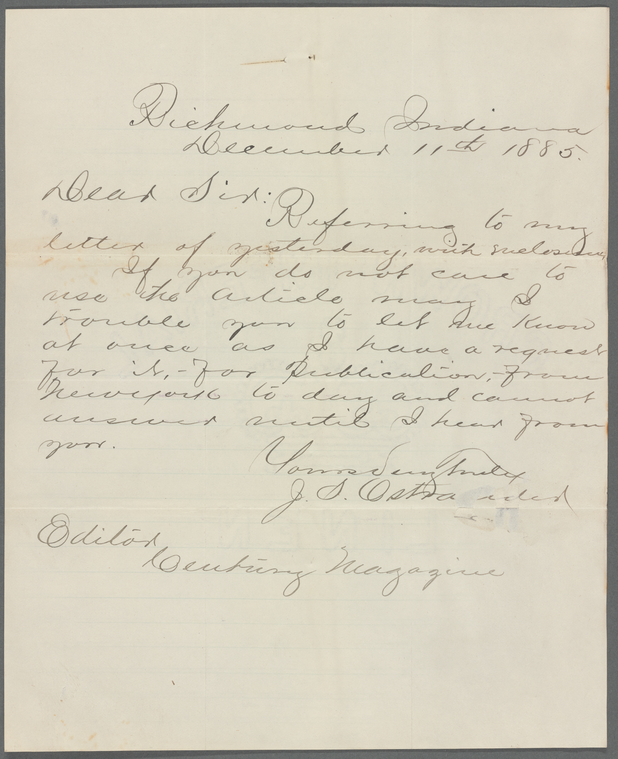 Richmond Indiana
December 11th 1885.
Dear Sir:
Referring to my
letter of yesterday, with enclosure,
If you do not care to
use the article may I
trouble you to let me know
at once as I have a request
for it,-for Publication,-from
Newyork to day and cannot
answer until I hear from
you.
Yours Very Truly
J. S. Ostrander
Editor
Century Magazine